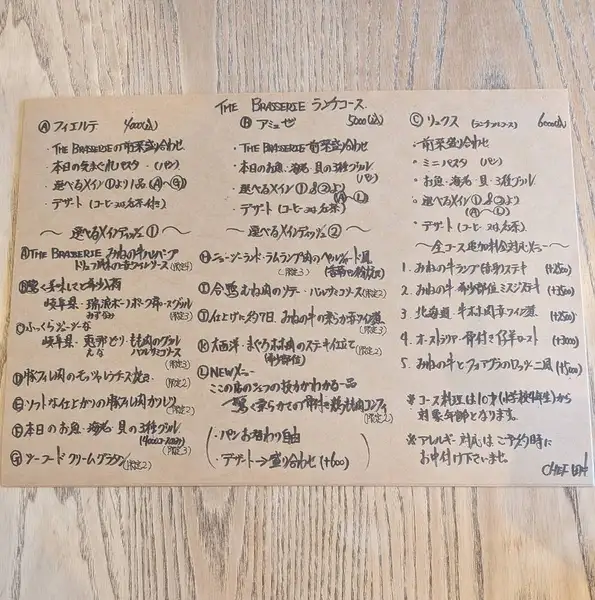 THE BRASSERIE ランチコース
Ⓐ フィエルテ 4000(込)
・THE BRASSERIEの前菜盛り合わせ
・本日の気まぐれパスタ・(パン)
・選べるメイン①より1品(Ⓐ〜Ⓖ)
・デザート(コーヒーor紅茶付き)
〜選べるメインディッシュ①〜
ⒶTHE BRASSERIE みねの牛ハンバーグ
トリュフ
赤ワインソース(限定4)
Ⓑ驚く美味しさと希少な
岐阜県・瑞浪ボーノポーク
グリル
みずなみ (限定3)
Ⓒふっくらジューシーな
岐阜県・恵那どり・もも肉のグリル
えな バルサミコソース
(限定3)
Ⓓ豚フィレ肉のモッツァレラチーズ焼き(限定2)
Ⓔソフトな仕上がりの豚フィレ肉カツレツ(限定2)
Ⓕ本日のお魚・海老・貝の3種グリル
Ⓖシーフードクリームグラタン(限定2)
Ⓑ アミューゼ 5000(込)
・THE BRASSERIE 前菜盛り合わせ
・本日のお魚・海老・貝の3種グリル
(パン)
・選べるメイン①&②より
(Ⓐ〜Ⓛ)
・デザート(コーヒーor紅茶)
〜選べるメインディッシュ②〜
Ⓗニュージーランド・ラムランプ肉のペルシャード風
(限定3)
Ⓘ合鴨むね肉のソテー・バルサミコソース(限定2)
Ⓙ仕上げに約7日、みねの牛の柔らか赤ワイン煮
(限定3)
Ⓚ大西洋・まぐろホホ肉のステーキ仕立て
(希少部位) (限定2)
ⓁNEWメニュー
この店のシェフの技がわかる一品
驚く柔らかさの骨付き鴨もも肉コンフィ
(限定2)
・パンお替わり自由
・デザート→盛り合わせ(+600)
Ⓒ リュクス (ランチフルコース) 6000(込)
・前菜盛り合わせ
・ミニパスタ (パン)
・お魚・海老・貝・3種グリル
・選べるメイン①&②より
(Ⓐ〜Ⓛ)
・デザート(コーヒーor紅茶)
〜全コース追加料金対応メニュー〜
1. みねの牛ランプ
ステーキ (+2500)
2. みねの牛・希少部位ミスジステーキ (+2500)
3. 北海道 牛ホホ肉赤ワイン煮 (+2500)
4. オーストラリア・骨付き仔羊ロースト (+3000)
5. みねの牛とフォアグラのロッシーニ風 (+4500)
※コース料理は10才(小学校4年生)から
対象年齢となります。
※アレルギー対応はご予約時に
お申付け下さいませ。
CHEF